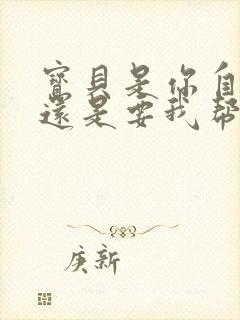 寶貝是你自
還是要我幫
庚新